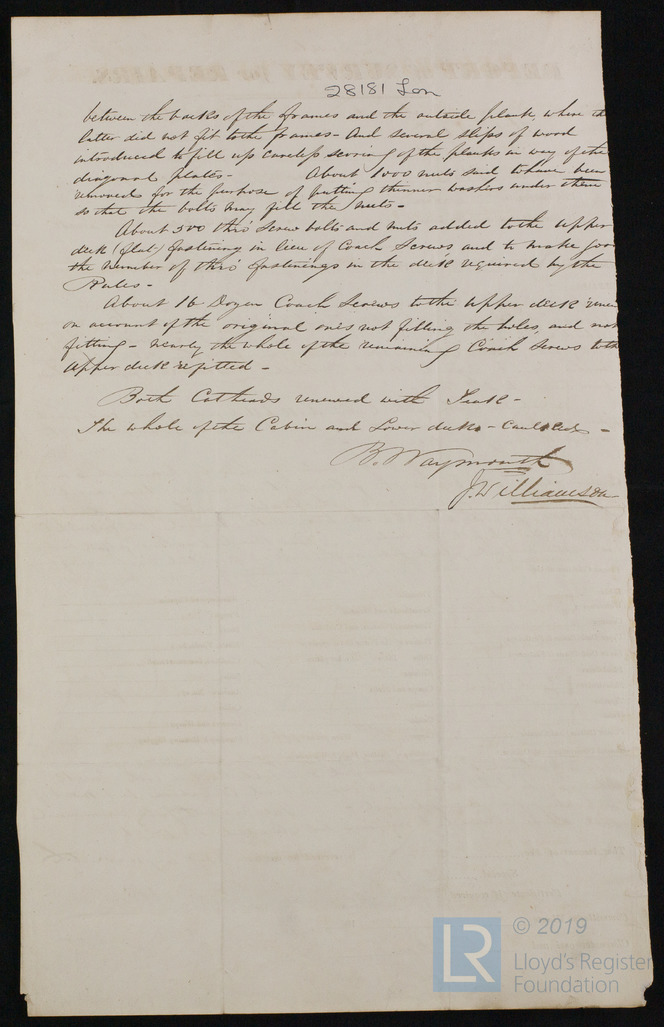 28181 Lon
between the backs of the frames and the outside plank, where the
latter did not fit to the frames - And several slips of wood
introduced to fill up careless scoring of the planks in way of the
diagonal plates - About 1000 nuts said to have been
removed for the purpose of putting thinner washers under them
so that the bolts may fill the nuts -
About 300 thro' Screw bolts and nuts added to the upper
deck (flat) fastening in lieu of Coach Screws and to make good
the number of thro' fastenings in the deck required by the
Rules -
About 16 Dozen Coach Screws to the upper deck
on account of the original ones not filling the holes, and not
fitting - nearly the whole of the remaining Coach Screws to the
upper deck refitted -
Both Catheads renewed with Teak -
The whole of the Cabin and Lower decks - Caulked -
B. Waymouth
J. Williamson
© 2019
LR
Lloyd's Register
Foundation